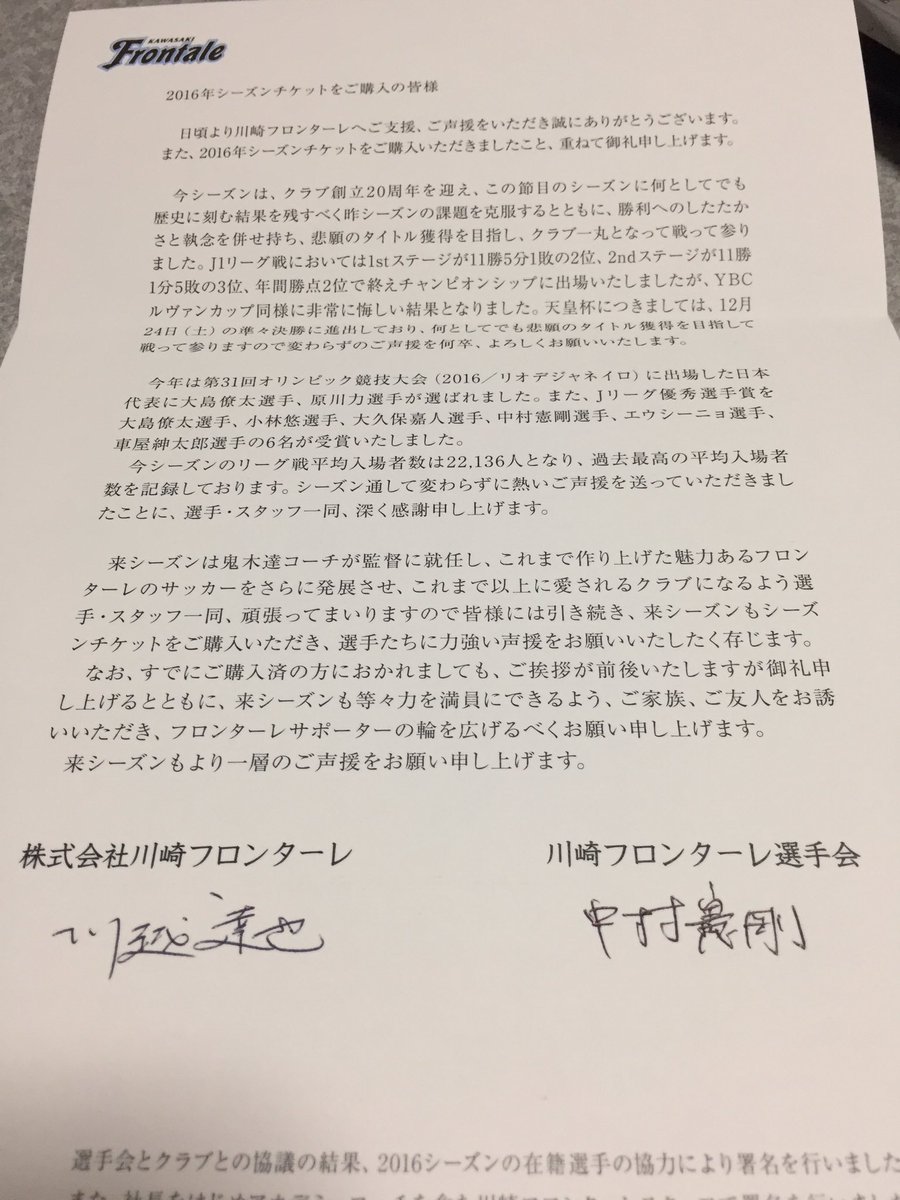 KAWASAKI
Frontale
2016年シーズンチケットをご購入の皆様
日頃より川崎フロンターレへご支援、ご声援をいただき誠にありがとうございます。
また、2016年シーズンチケットをご購入いただきましたこと、重ねて御礼申し上げます。
今シーズンは、クラブ創立20周年を迎え、この節目のシーズンに何としてでも
歴史に刻む結果を残すべく昨シーズンの課題を克服するとともに、勝利へのしたたか
さと執念を併せ持ち、悲願のタイトル獲得を目指し、クラブ一丸となって戦って参り
ました。J1リーグ戦においては1stステージが11勝5分1敗の2位、2ndステージが11勝
1分5敗の3位、年間勝点2位で終えチャンピオンシップに出場いたしましたが、YBC
ルヴァンカップ同様に非常に悔しい結果となりました。天皇杯につきましては、12月
24日（土）の準々決勝に進出しており、何としてでも悲願のタイトル獲得を目指して
戦って参りますので変わらずのご声援を何卒、よろしくお願いいたします。
今年は第31回オリンピック競技大会（2016／リオデジャネイロ）に出場した日本
代表に大島僚太選手、原川力選手が選ばれました。また、Jリーグ優秀選手賞を
大島僚太選手、小林悠選手、大久保嘉人選手、中村憲剛選手、エウシーニョ選手、
車屋紳太郎選手の6名が受賞いたしました。
今シーズンのリーグ戦平均入場者数は22,136人となり、過去最高の平均入場者
数を記録しております。シーズン通して変わらずに熱いご声援を送っていただきまし
たことに、選手・スタッフ一同、深く感謝申し上げます。
来シーズンは鬼木達コーチが監督に就任し、これまで作り上げた魅力あるフロン
ターレのサッカーをさらに発展させ、これまで以上に愛されるクラブになるよう選
手・スタッフ一同、頑張ってまいりますので皆様には引き続き、来シーズンもシーズ
ンチケットをご購入いただき、選手たちに力強い声援をお願いいたしたく存じます。
なお、すでにご購入済の方におかれましても、ご挨拶が前後いたしますが御礼申
し上げるとともに、来シーズンも等々力を満員にできるよう、ご家族、ご友人をお誘
いいただき、フロンターレサポーターの輪を広げるべくお願い申し上げます。
来シーズンもより一層のご声援をお願い申し上げます。
株式会社川崎フロンターレ
川崎フロンターレ選手会
川越達也
中村憲剛
選手会とクラブとの協議の結果、2016シーズンの在籍選手の協力により署名を行いました